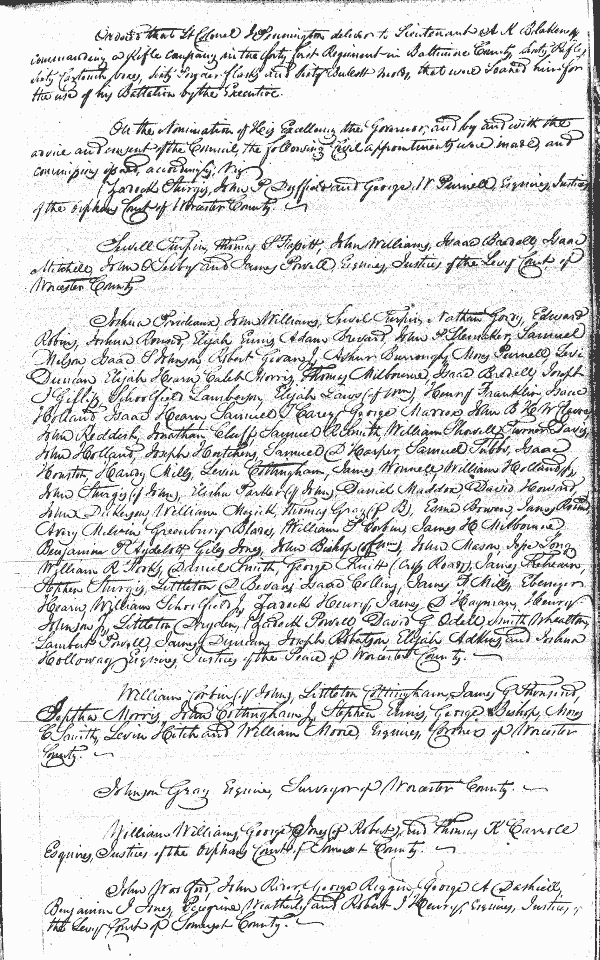 Ordered that Lt Colonel J Pennington deliver to Lieutenant A K
commanding a Rifle company in the forty first Regiment in Baltimore County, sixty Rifles,
sixty Cartouch boxes, sixty Powder flasks and sixty Bullett molds, that were loaned him for
the use of his Battalion by the Executive.
On the Nomination of His Excellency the Governor, and by and with the
advice and consent of the Council, the following Civil appointments were made, and
commissions issued, accordingly, Viz
Zadock Sturgis, John P. Duffield and George W Purnell, Esquires, Justices
of the Orphans Court of Worcester County.
Sewell Turpin, Thomas S Fassitt, John Williams, Isaac Isaac
Mitchell, John O Selby and James Powell Esquires, Justices of the Levy Court of
Worcester County
Joshua Prideaux, John Williams, Sewel Turpin, Nathan Gordy, Edward
Robins, Joshua Elijah Ennis Adam John P Slemaker, Samuel
Melson Isaac S Johnson Robert Givan J Arthur Burroughs, Moses Purnell Levi
Duncan Elijah Hearn Caleb Morris, Thomas Milbourne, Isaac Joseph
Gillis, Schoolfield Elijah Laws (of Wm), Henry Franklin, Isaac
Holland Isaac Hearn Samuel T Carey George John B H W
John Reddish, Jonathan Cluff Samuel R Smith, William Showell, Davis
John Holland, Joseph Hutchens, Samuel D Harper, Samuel Tubbs, Isaac
Houston Handy Mills, Levin Cottingham, James William Holland
John Sturgis (of John), Elisha Parker (of John), Daniel Maddox David Howard
John Dickerson William Thomas Gray (of B), Bowen, James Round,
Avery Melvin Greenbury William James H Milbourne
Benjamin P Aydelott Giles Jones, John Bishop (of Wm), John Mason, Jesse Long
William R Daniel Smith, George (Cross Roads), James
Stephen Sturgis, Littleton D Bevans Isaac Collins, James F Mills, Ebenezer
Hearn, William Schoolfield Zadock Henry James D Hayman, Henry
Johnson Jr, Littleton Dryden, Zadock Powell David G Odell Smith Wheatley
Lambert Powell, James Duncan, Joseph Robetson, Elijah Adkins and Joshua
Holloway Esquires, Justices of the Peace of Worcester County.
William Corbin (of John), Littleton Cottingham, James G
Jeptha Morris, John Cottingham Jr Stephen Ennis, George Bishop, Moses
C Smith, Levin Hitch and William Moore Esquires, Coroners of Worcester
County.
Johnson Gray Esquire, Surveyor of Worcester County.
William Williams, George Jones (of Robert), and Thomas K Carroll
Esquires, Justices of the Orphans Court of Somerset County.
John John George George A Dashiell,
Benjamin I Jones, Peregrine Weatherly and Robert J Henry Esquires, Justices of
the Levy Court of Somerset County.